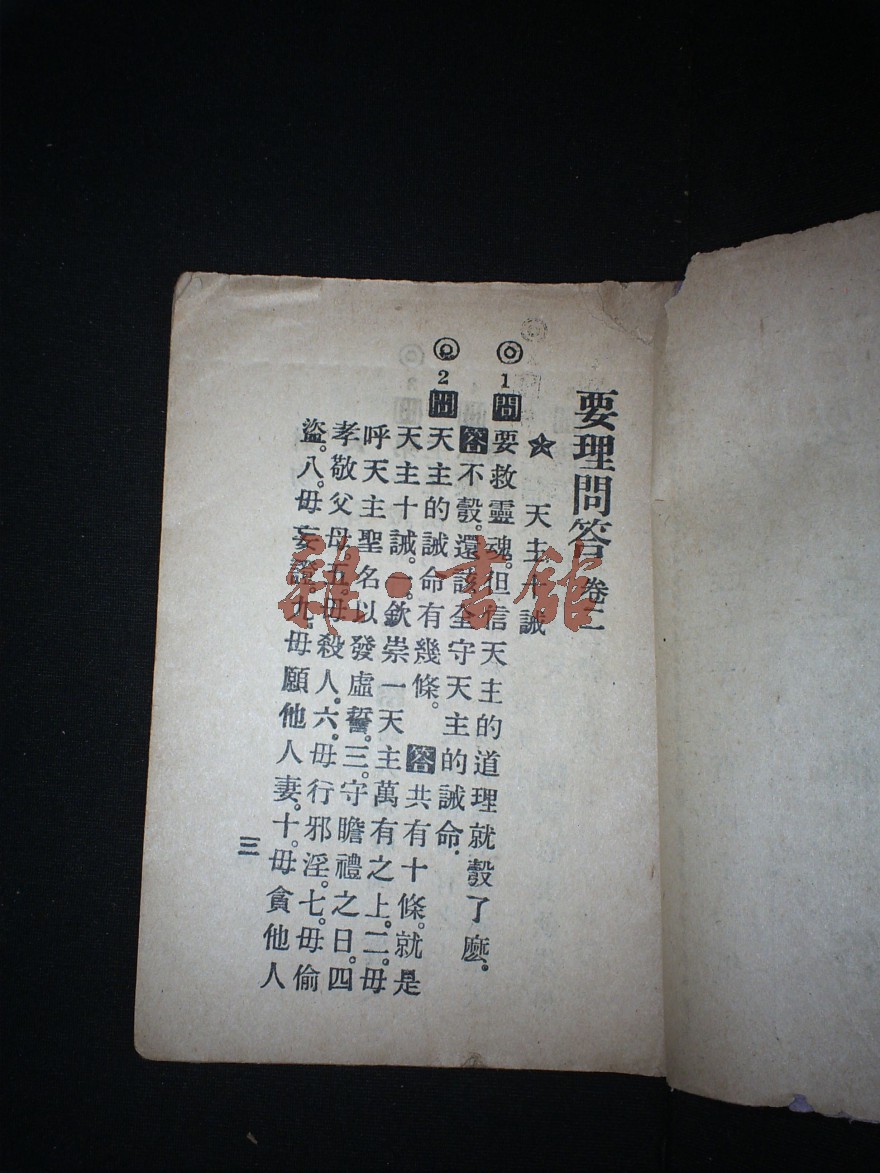 要理問答 卷二
★ 天主十誡
◎ 1 問 要救靈魂。但信天主的道理就彀了麽。
答 不彀。還該全守天主的誡命.
◎ 2 問 天主的誡命有幾條。 答 共有十條。就是
天主十誡。一。欽崇一天主萬有之上。二。毋
呼天主聖名以發虛誓。三。守瞻禮之日。四
孝敬父母五毋殺人。六。毋行邪淫。七。毋偷
盜。八。毋妄證九。毋願他人妻。十。毋貪他人
三
雜·書館